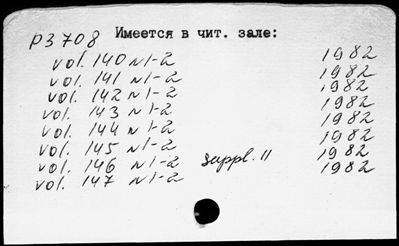 Р3708 Имеется в чит. зале:
vol. 140 N1-2 1982
vol. 141 N1-2 1982
vol. 142 N1-2 1982
vol. 143 N1-2 1982
vol. 144 N1-2 1982
vol. 145 N1-2 1982
vol. 146 N1-2 suppl. 11 1982
vol. 147 N1-2 1982